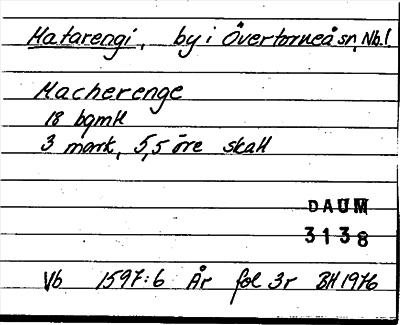 Matarengi, by i Övertorneå sn, Nb. l.
Macherenge
18 bgmH
3 mark, 5,5 öre skatt
DAUM
3138
Vb 1597:6 År fol 3r BH 1976